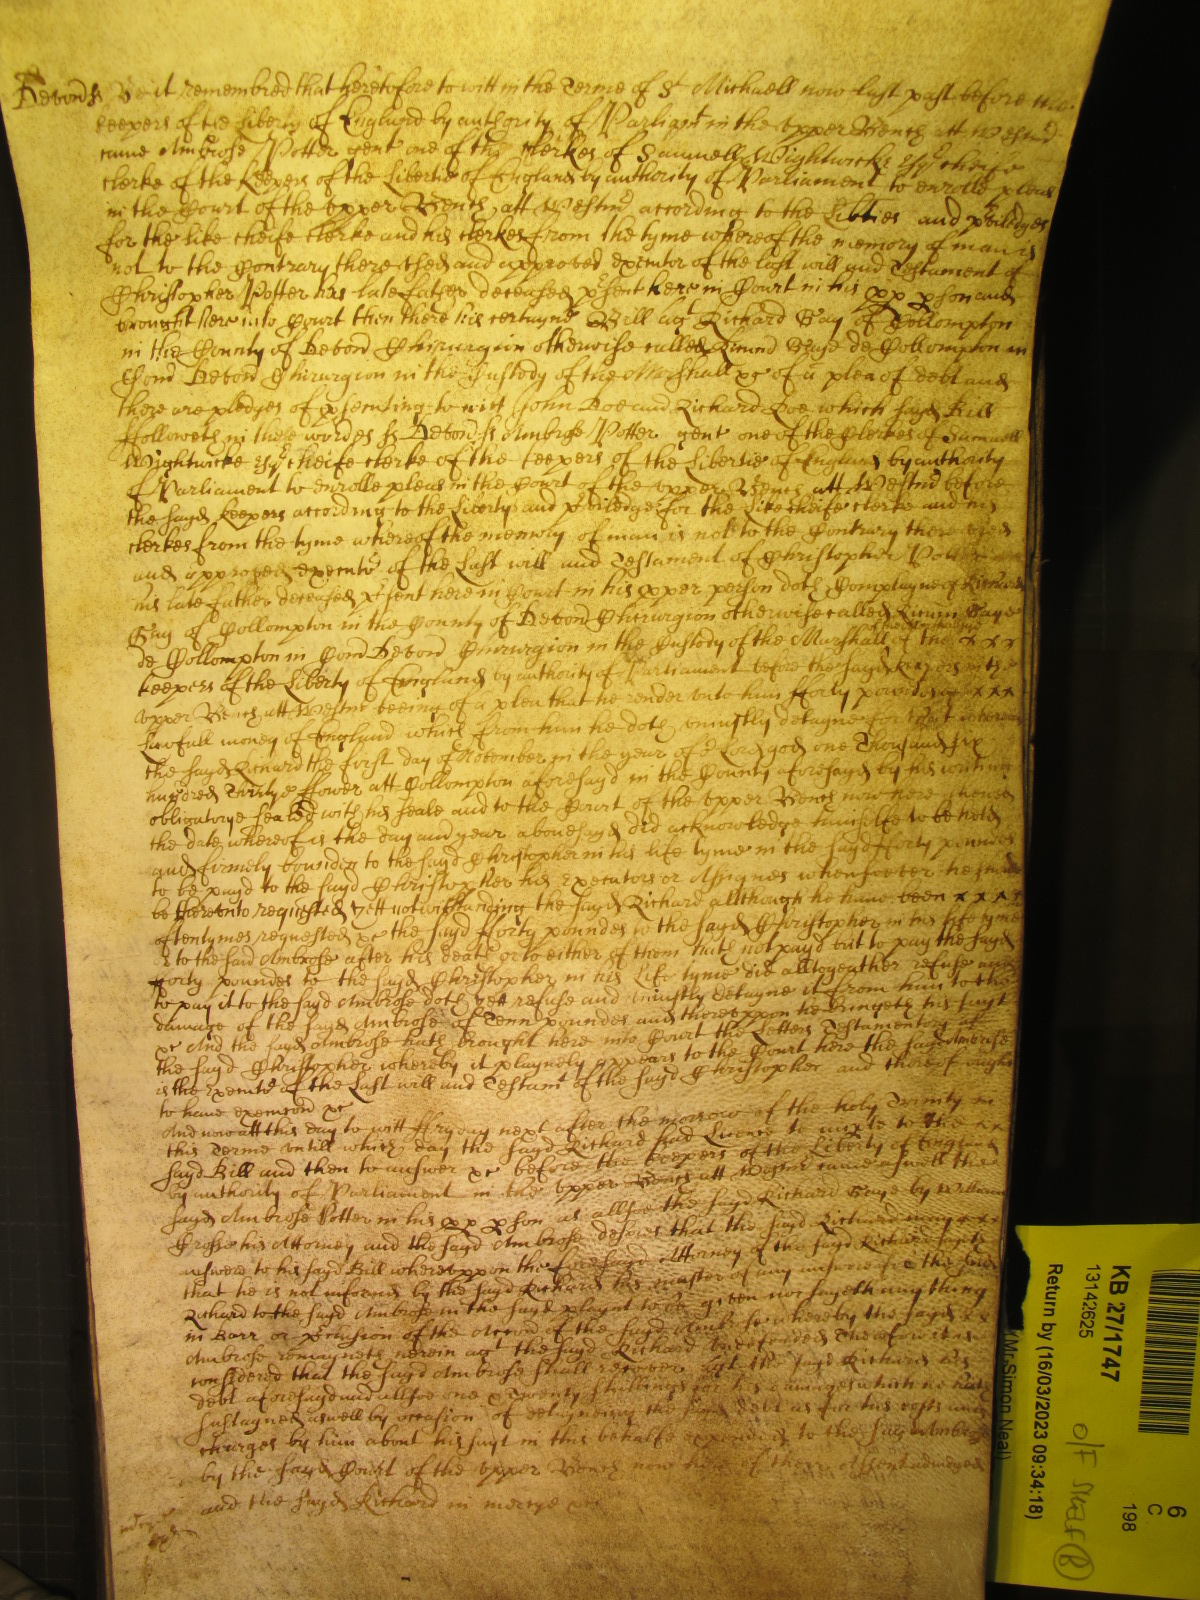 Devon ss Be it remembred that heretofore to witt in the Terme of St Michaell now last past before the
keepers of the liberty of England by authority of Parliamt in the Upper Bench att Westmr
came Ambrose Potter gent one of the clerkes of Samuell Wightwicke Esqr cheife
clerke of the keepers of the libertie of England by authority of Parliament to enrolle pleas
in the Court of the upper Bench att Westmr according to the Libties and priledges
for the like cheife clerke and his clerkes from the tyme whereof the memory of man is
not to the Contrary there used and approved executor of the last will and Testament of
Christopher Potter his late father deceased psent here in Court in his pp pson and
brought here into Court then there his certayne Bill agt Richard Gay of Collompton
in the County of Devon Chirurgion otherwise called de Collompton in
Com Devon Chirurgion in the Custody of the Marshall &c of a plea of debt and
there are pledges of psecuting to witt John Doe and Richard Roe which sayd Bill
followeth in these wordes ss Devon ss Ambrose Potter gent one of the Clerkes of Samuell
Wightwicke Esqr cheife clerke of the keepers of the libertie of England by authority
of Parliament to enrolle pleas in the Court of the upper Bench att Westmr before
the sayd keepers according to the liberty and priledges for the like cheife clerke and his
clerkes from the tyme whereof the memory of man is not to the Contrary there used
and approved executor of the last will and Testament of Christopher Potter
his late father deceased psent here in Court in his pper person doth Complayne of Richard
Gay of Collompton in the County of Devon Chirurgion otherwise called
de Collompton in Com Devon Chirurgion in the Custody of the Marshall of the x x x
keepers of the liberty of England by authority of Parliament before the sayd keepers in the
upper Bench att Westmr beeing of a plea that he render unto him fforty poundes of x x x
lawfull money of England which from him he doth uniustly detayne for that whereas
the sayd Richard the first day of November in the year of or Lord god one Thousand six
hundred Thirtye ffower att Collompton aforesayd in the County aforesayd by his writing
obligatorye sealed with his seale and to the Court of the upper Bench now here shewed
the date whereof is the day and year abovesayd did acknowledge himselfe to be held
and firmely bounden to the sayd Christopher in his life tyme in the sayd fforty poundes
to be payd to the sayd Christopher his executors or Assignes whensoever he should
be thereunto requested yett notwithstanding the sayd Richard although he have been x x x x
oftentymes requested &c the sayd fforty poundes to the sayd Christopher in his life tyme
& to the said Ambrose after his death or to either of them hath not payd but to pay the sayd
fforty poundes to the sayd Christopher in his life tyme did alltogeather refuse and
to pay it to the sayd Ambrose doth yett refuse and uniustly detayne it from him to the
damage of the sayd Ambrose of Tenn poundes and thereuppon he bringeth his suyt
&c And the sayd Ambrose hath brought here into Court the Letters Testamentory of
the sayd Christopher whereby it playnely appears to the Court here the sayd Ambrose
is the executor of the last will and Testamt of the sayd Christopher and thereof ought
to have execucon &c
And now att this day to witt ffryday next after the morrow of the holy Trinity in
this Terme untill which day the sayd Richard had Licence to imple to the x x
sayd Bill and then to answer &c before the keepers of the Liberty of England
by authority of Parliament in the upper Bench att Westmr came aswell the
sayd Ambrose Potter in his pp pson as allsoe the sayd Richard Gaye by William
Crosse his Attorney and the sayd Ambrose desires that the sayd Richard may x x x
answere to his sayd Bill whereuppon the foresayd Attorney of the sayd Richard sayth
that he is not informed by the sayd Richard his master of any answere for the said
Richard to the sayd Ambrose in the sayd playnt to be given nor sayeth any thing
in Barr or pclusion of the accon of the sayd Ambrose whereby the sayd x x
Ambrose remayneth herein agt the sayd Richard undefended Therefore it is
considered that the sayd Ambrose shall recover agt the sayd Richard his
debt aforesayd and allsoe one & Twenty shillings for his damages which he hath
sustayned aswell by occasion of deteyneing the sayd debt as for his costs and
charges by him about his suyt in this behalfe expended to the sayd Ambrose
by the sayd Court of the upper Bench now here of their assent adiudged
and the sayd Richard in mercye &c
KB 27/1747
13142625
Return by (16/03/2023 09:34:18)
(Mr Simon Neal)
6
C
198
O/F Shelf